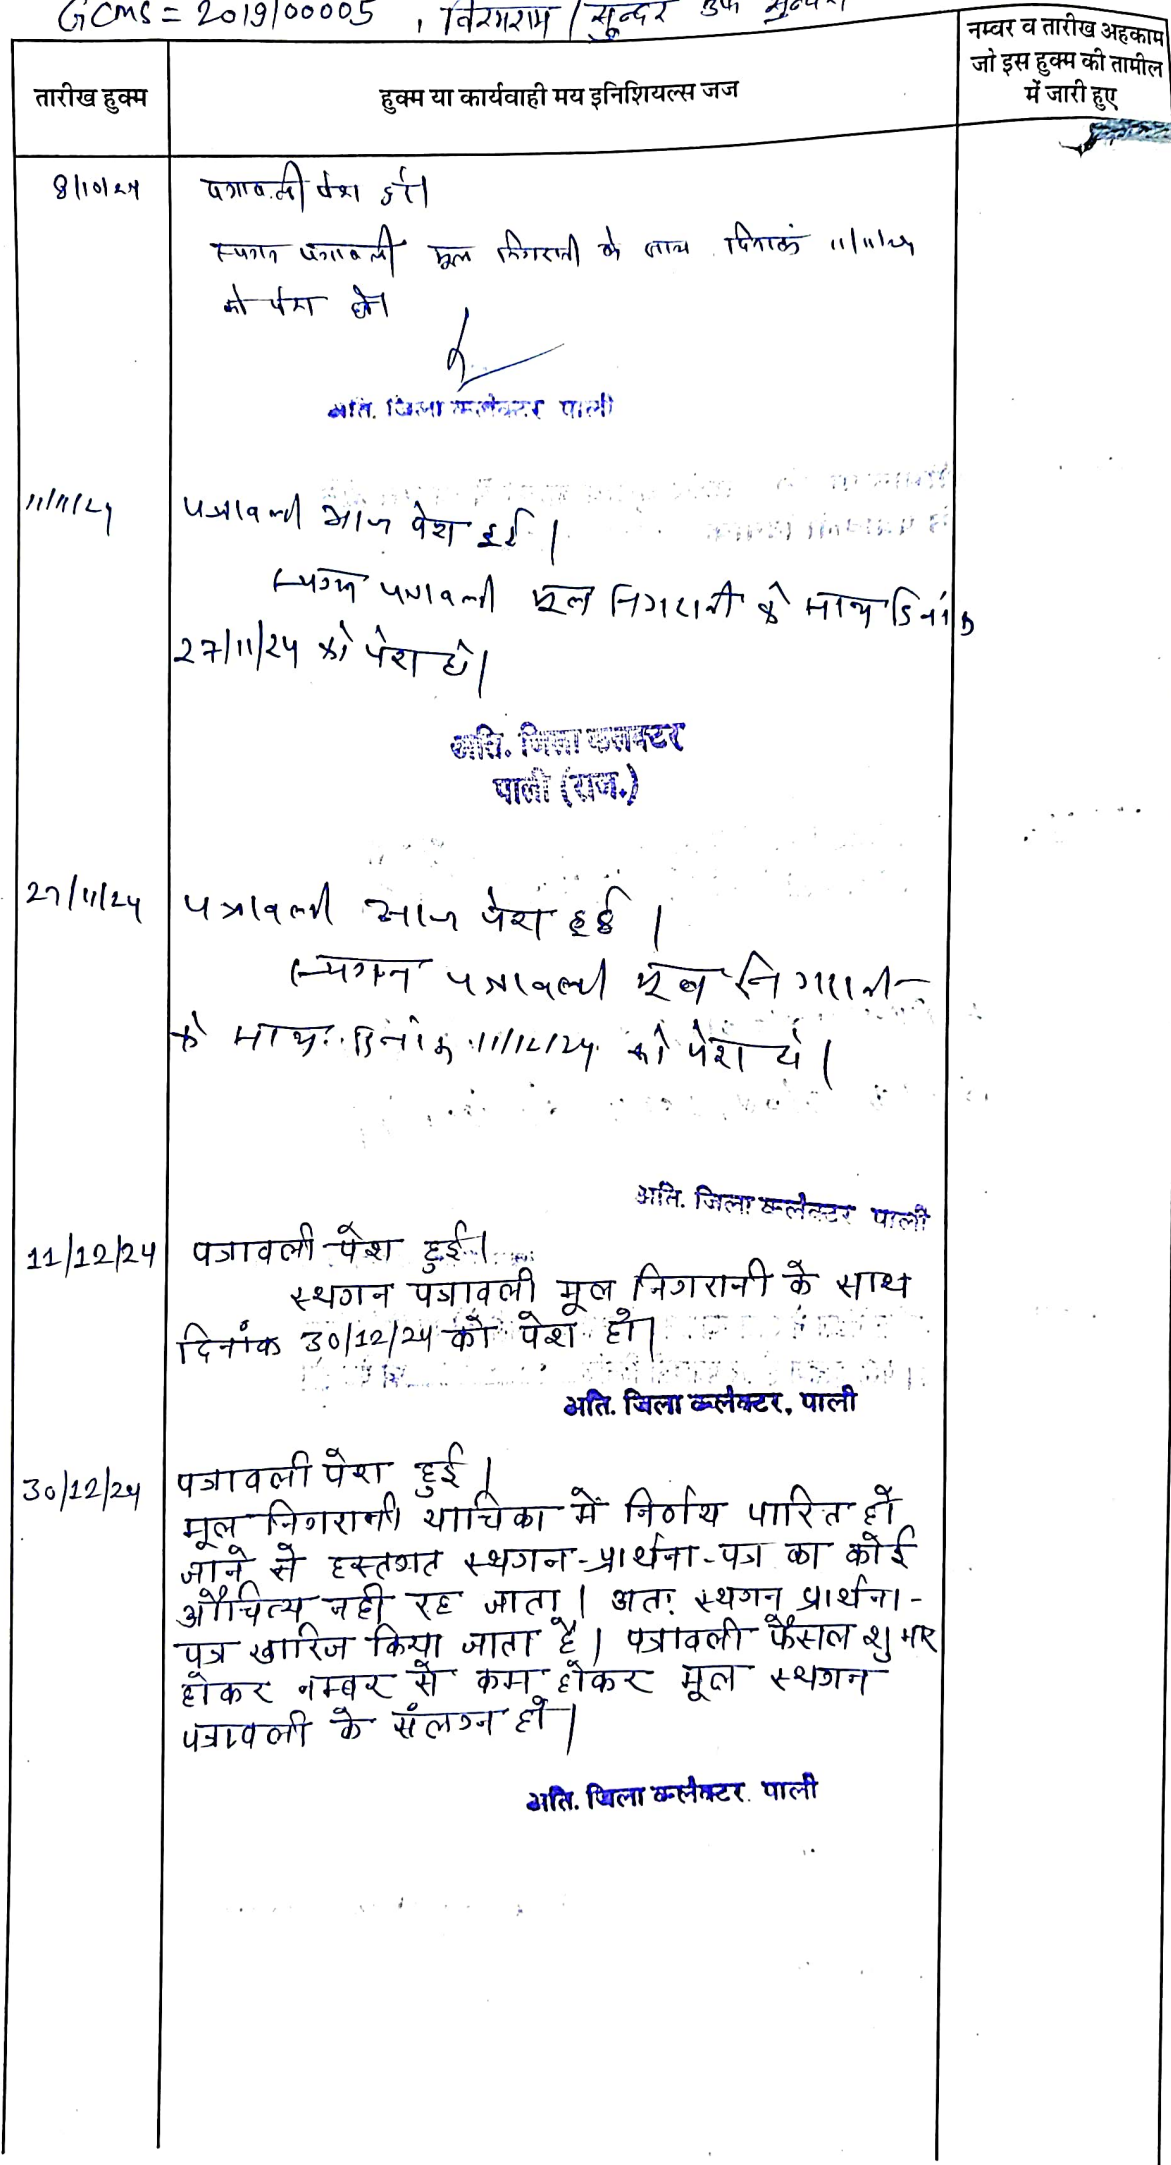 GCMS = 2019/00005 , विरमराम / सुन्दर उर्फ
तारीख हुक्म
हुक्म या कार्यवाही मय इनिशियल्स जज
नम्बर व तारीख अहकाम
जो इस हुक्म की तामील
में जारी हुए
8/10/24
पत्रावली पेश हुई।
स्थगन पत्रावली मूल निगरानी के साथ दिनांक 11/11/24
को पेश हो।
अति. जिला कलेक्टर पाली
11/11/24
पत्रावली आज पेश हुई।
स्थगन पत्रावली मूल निगरानी के साथ दिनांक
27/11/24 को पेश हो।
अति. जिला कलक्टर
पाली (राज.)
27/11/24
पत्रावली आज पेश हुई।
स्थगन पत्रावली मूल निगरानी
के साथ दिनांक 11/12/24 को पेश हो।
अति. जिला कलेक्टर पाली
11/12/24
पत्रावली पेश हुई।
स्थगन पत्रावली मूल निगरानी के साथ
दिनांक 30/12/24 को पेश हो।
अति. जिला कलेक्टर, पाली
30/12/24
पत्रावली पेश हुई।
मूल निगरानी याचिका में निर्णय पारित हो
जाने से हस्तगत स्थगन-प्रार्थना-पत्र का कोई
औचित्य नही रह जाता। अतः स्थगन प्रार्थना-
पत्र खारिज किया जाता है। पत्रावली फैसल शुमार
होकर नम्बर से कम होकर मूल स्थगन
पत्रावली के संलग्न हो।
अति. जिला कलेक्टर. पाली